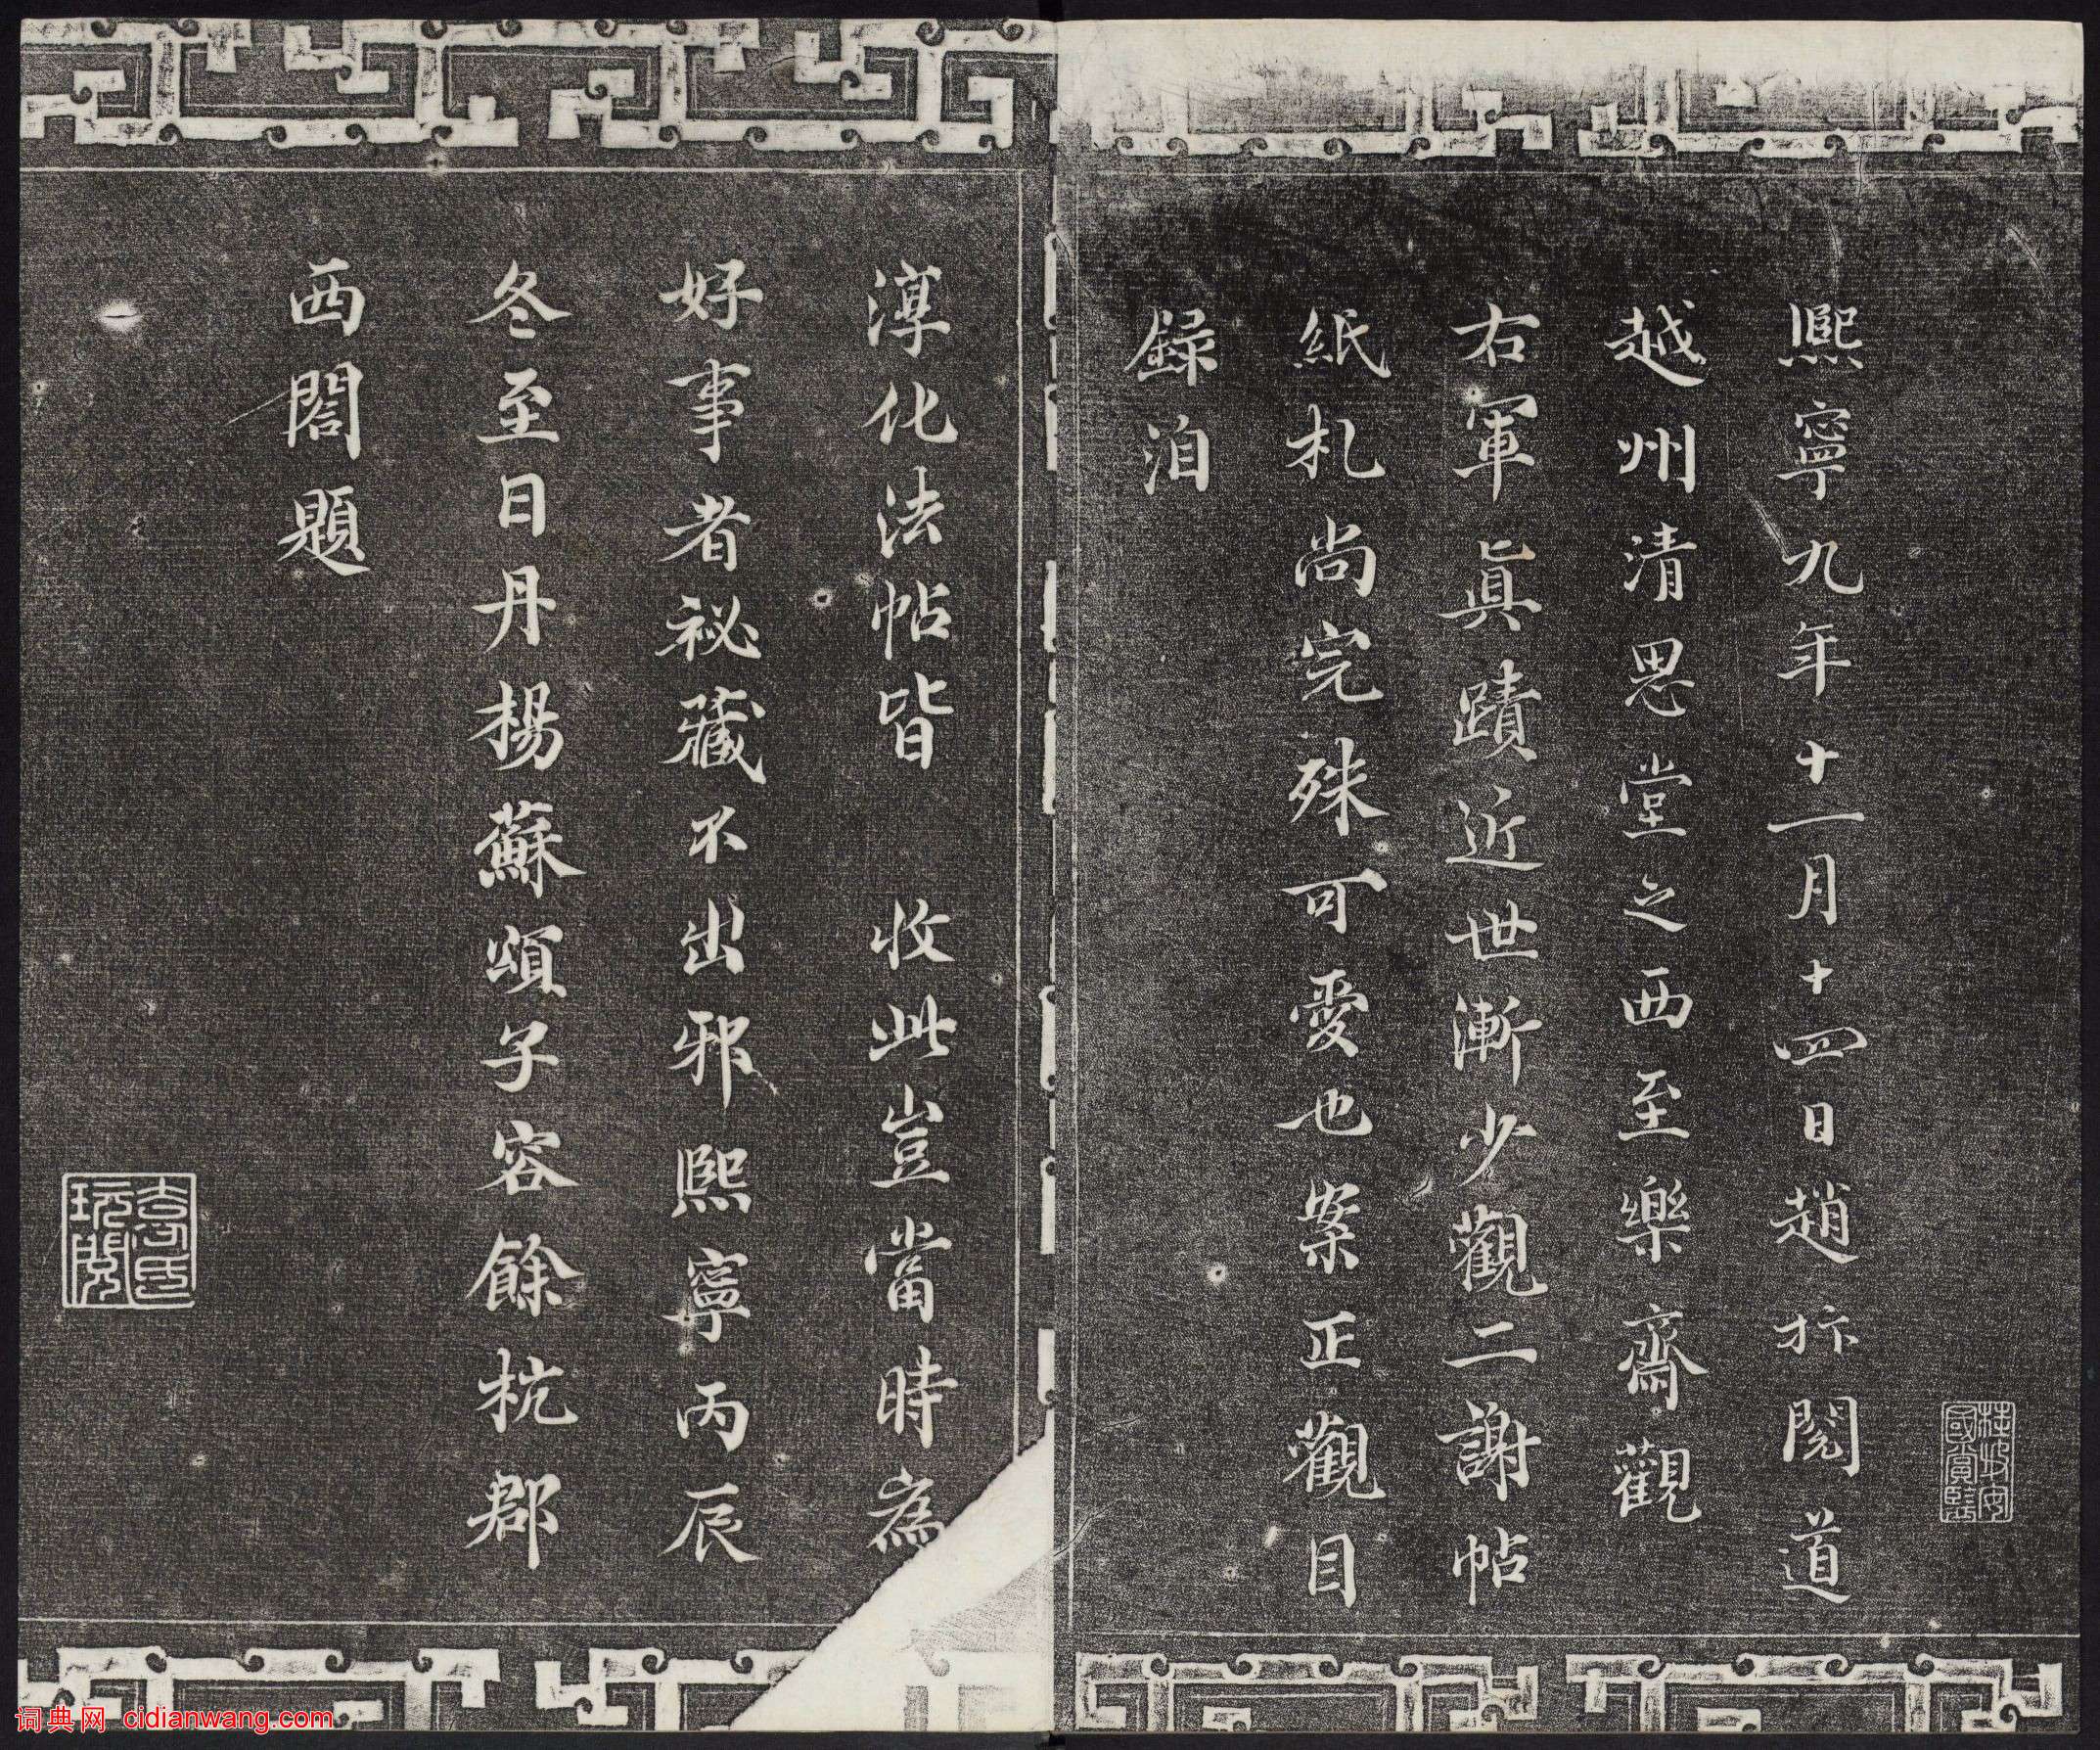 熙寧九年十一月十四日趙抃閱道
越州清思堂之西至樂齋觀
右軍真蹟近世漸少觀二謝帖
紙札尚完殊可愛也案正觀目
録洎
淳化法帖皆 收此豈當時為
好事者祕藏不出邪熙寧丙辰
冬至日丹楊蘇頌子容餘杭郡
西閤題
词典网 cidianwang.com